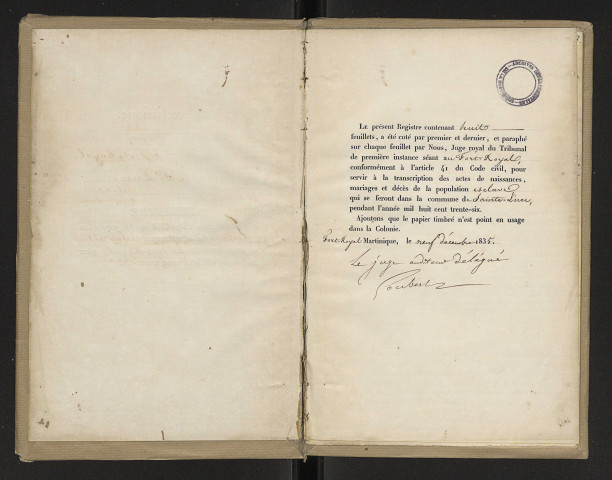 Le présent Registre contenant huit
feuillets, a été coté par premier et dernier, et paraphé
sur chaque feuillet par Nous, Juge royal du Tribunal
de première instance séant au Fort-Royal,
conformément à l'article 41 du Code civil, pour
servir à la transcription des actes de naissances,
mariages et décès de la population esclave
qui se feront dans la commune de Sainte-Luce,
pendant l'année mil huit cent trente-six.
Ajoutons que le papier timbré n'est point en usage
dans la Colonie.
Fort-Royal Martinique, le neuf décembre 1835.
Le juge auditeur délégué